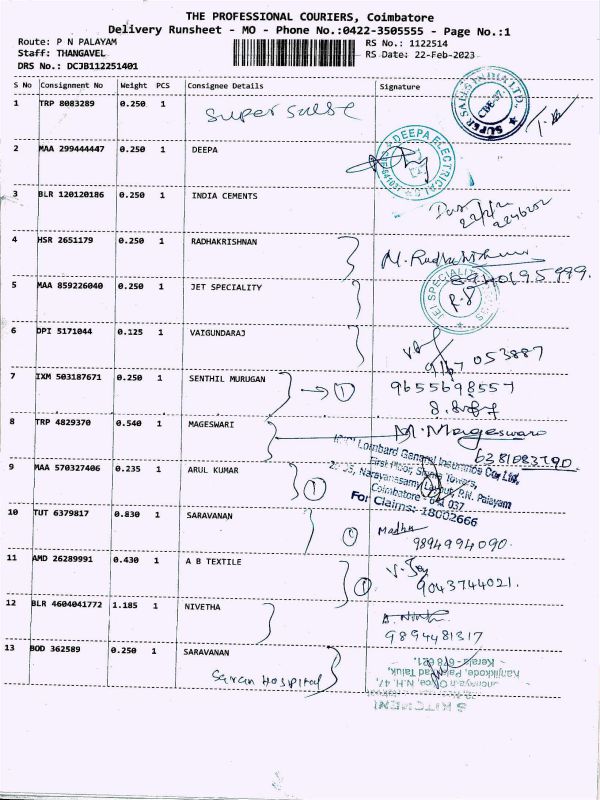 THE PROFESSIONAL COURIERS, Coimbatore
Delivery Runsheet - MO - Phone No.:0422-3505555 - Page No.:1
Route: P N PALAYAM
Staff: THANGAVEL
DRS No.: DCJB112251401
RS No.: 1122514
RS Date: 22-Feb-2023
S No Consignment No Weight PCS Consignee Details Signature
1 TRP 8083289 0.250 1 Super Salse
SUPER SALES INDIA LTD. CBE-37.
2 MAA 299444447 0.250 1 DEEPA
DEEPA ELECTRICAL
3 BLR 120120186 0.250 1 INDIA CEMENTS
4 HSR 2651179 0.250 1 RADHAKRISHNAN M. Radhakrishnan
5 JET 859226040 0.250 1 JET SPECIALITY
6 DPI 5171044 0.125 1 VAIGUNDARAJ
053887
7 IXM 503187671 0.250 1 SENTHIL MURUGAN 1 9655698557
8 TRP 4829370 0.540 1 MAGESWARI M. Mageswari
6281083790
9 MAA 570327406 0.235 1 ARUL KUMAR 1
Lombard General Insurance Co. Ltd,
First Floor, Towers,
Narayanasamy Layout, P.N. Palayam
Coimbatore - 641 037
For Claims:- 18002666
10 TUT 6379817 0.830 1 SARAVANAN Madhu
9894994090.
11 AMD 26289991 0.430 1 A B TEXTILE 1
9043744021.
12 BLR 4604041772 1.185 1 NIVETHA
9894481317
13 BOD 362589 0.250 1 SARAVANAN
Saran Hospital
N.H. 47,
Kanjikkode, Palakkad Taluk,
Kerala - 678 621.